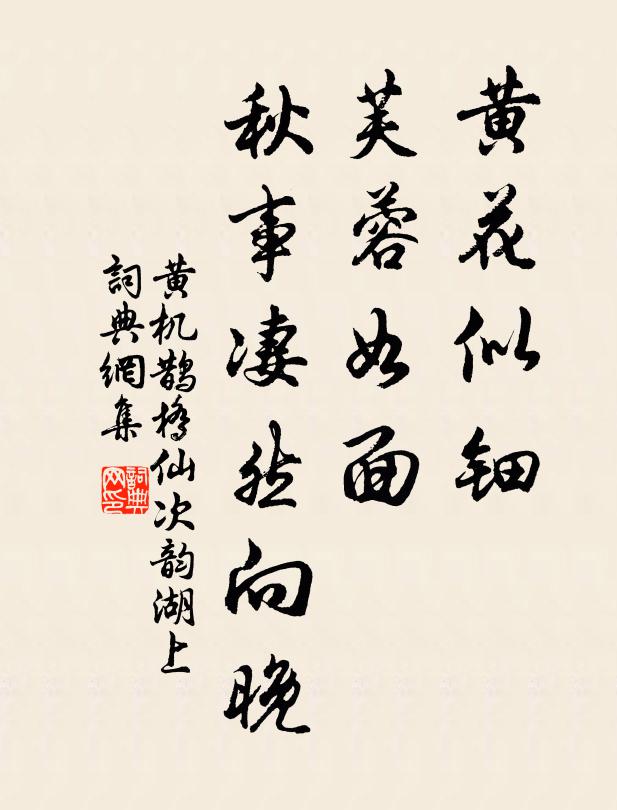 黄花似钿
芙蓉如面
秋事凄然向晚
黄机鹊桥仙次韵湖上
詞典網集
詞典网印